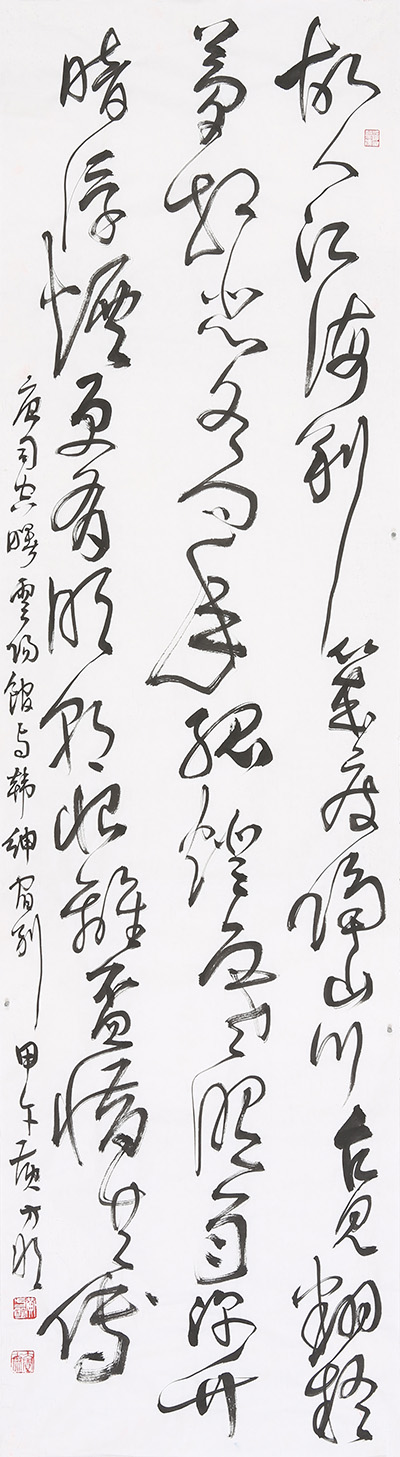 故人江海别幾度隔山川乍见翻疑
夢相悲各问年孤燈寒照雨深竹
暗浮煙更有明朝恨離盃惜共傳
唐司空曙雲陽館与韓紳宿别 甲午